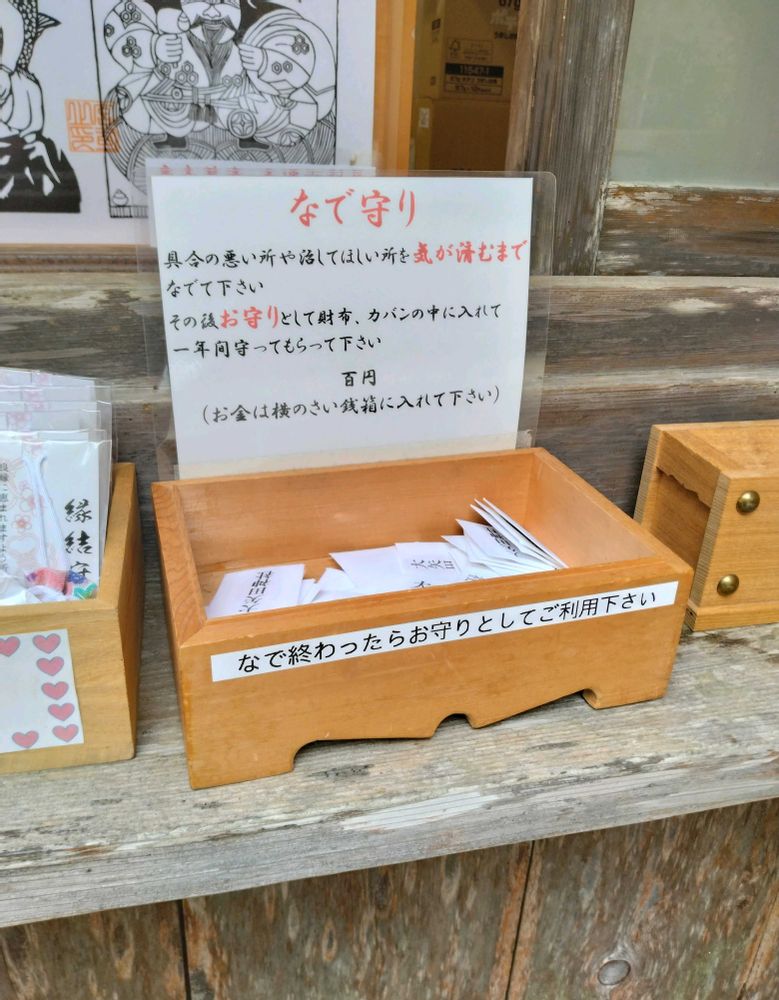 なで守り
具合の悪い所や治してほしい所を気が済むまで
なでて下さい
その後お守りとして財布、カバンの中に入れて
一年間守ってもらって下さい
百円
(お金は横のさい銭箱に入れて下さい)
なで終わったらお守りとしてご利用下さい
縁結守